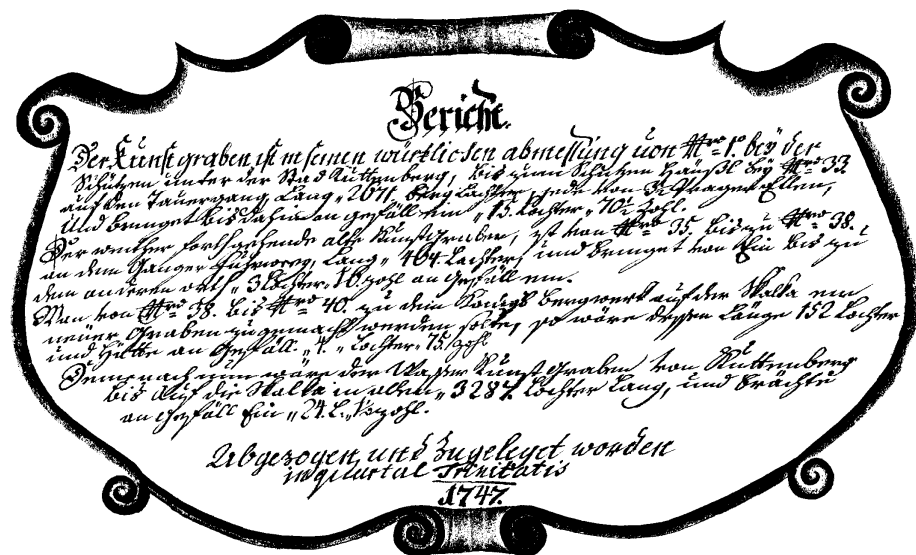 Bericht.
Der Kunst graben ist in seinen würklichen abmessung von Nro 1. bey der
Schützen unter der Stad Kuttenberg, bis zum Schützen Häußl bey Nro 33.
auf den Tauergang, Lang, 2071. berg Lachter, jede von 3. Prager Ellen,
und bringet bis dahin an gefäll ein, 13. Lachter, 70. Zohl.
Der weither forthgehende alte Kunst Graben, ist von Nro 35. bis zu Nro 38.
an dem Ganger Fuhrweeg, Lang, 464 Lachter, und bringet von Ein bis zu
dem anderen orth, 3 Lachter, 16. zohl an gefäll ein.
Wan von Nro 38. bis Nro 40. zu dem Königs bergwerk auf der Skalka ein
neuer Graben zugemacht werden solte, so wäre dessen Länge 152 Lachter
und Hätte an Gefäll, 4. Lachter, 75. zohl
Demenach nun wäre der Wasser Kunst Graben von Kuttenberg
bis auf die Skalka in allen, 3284 Lachter Lang, und brächte
an gefäll Ein, 24. L.
Abgezogen und Zugeleget worden
in quartal Trinitatis
1747.